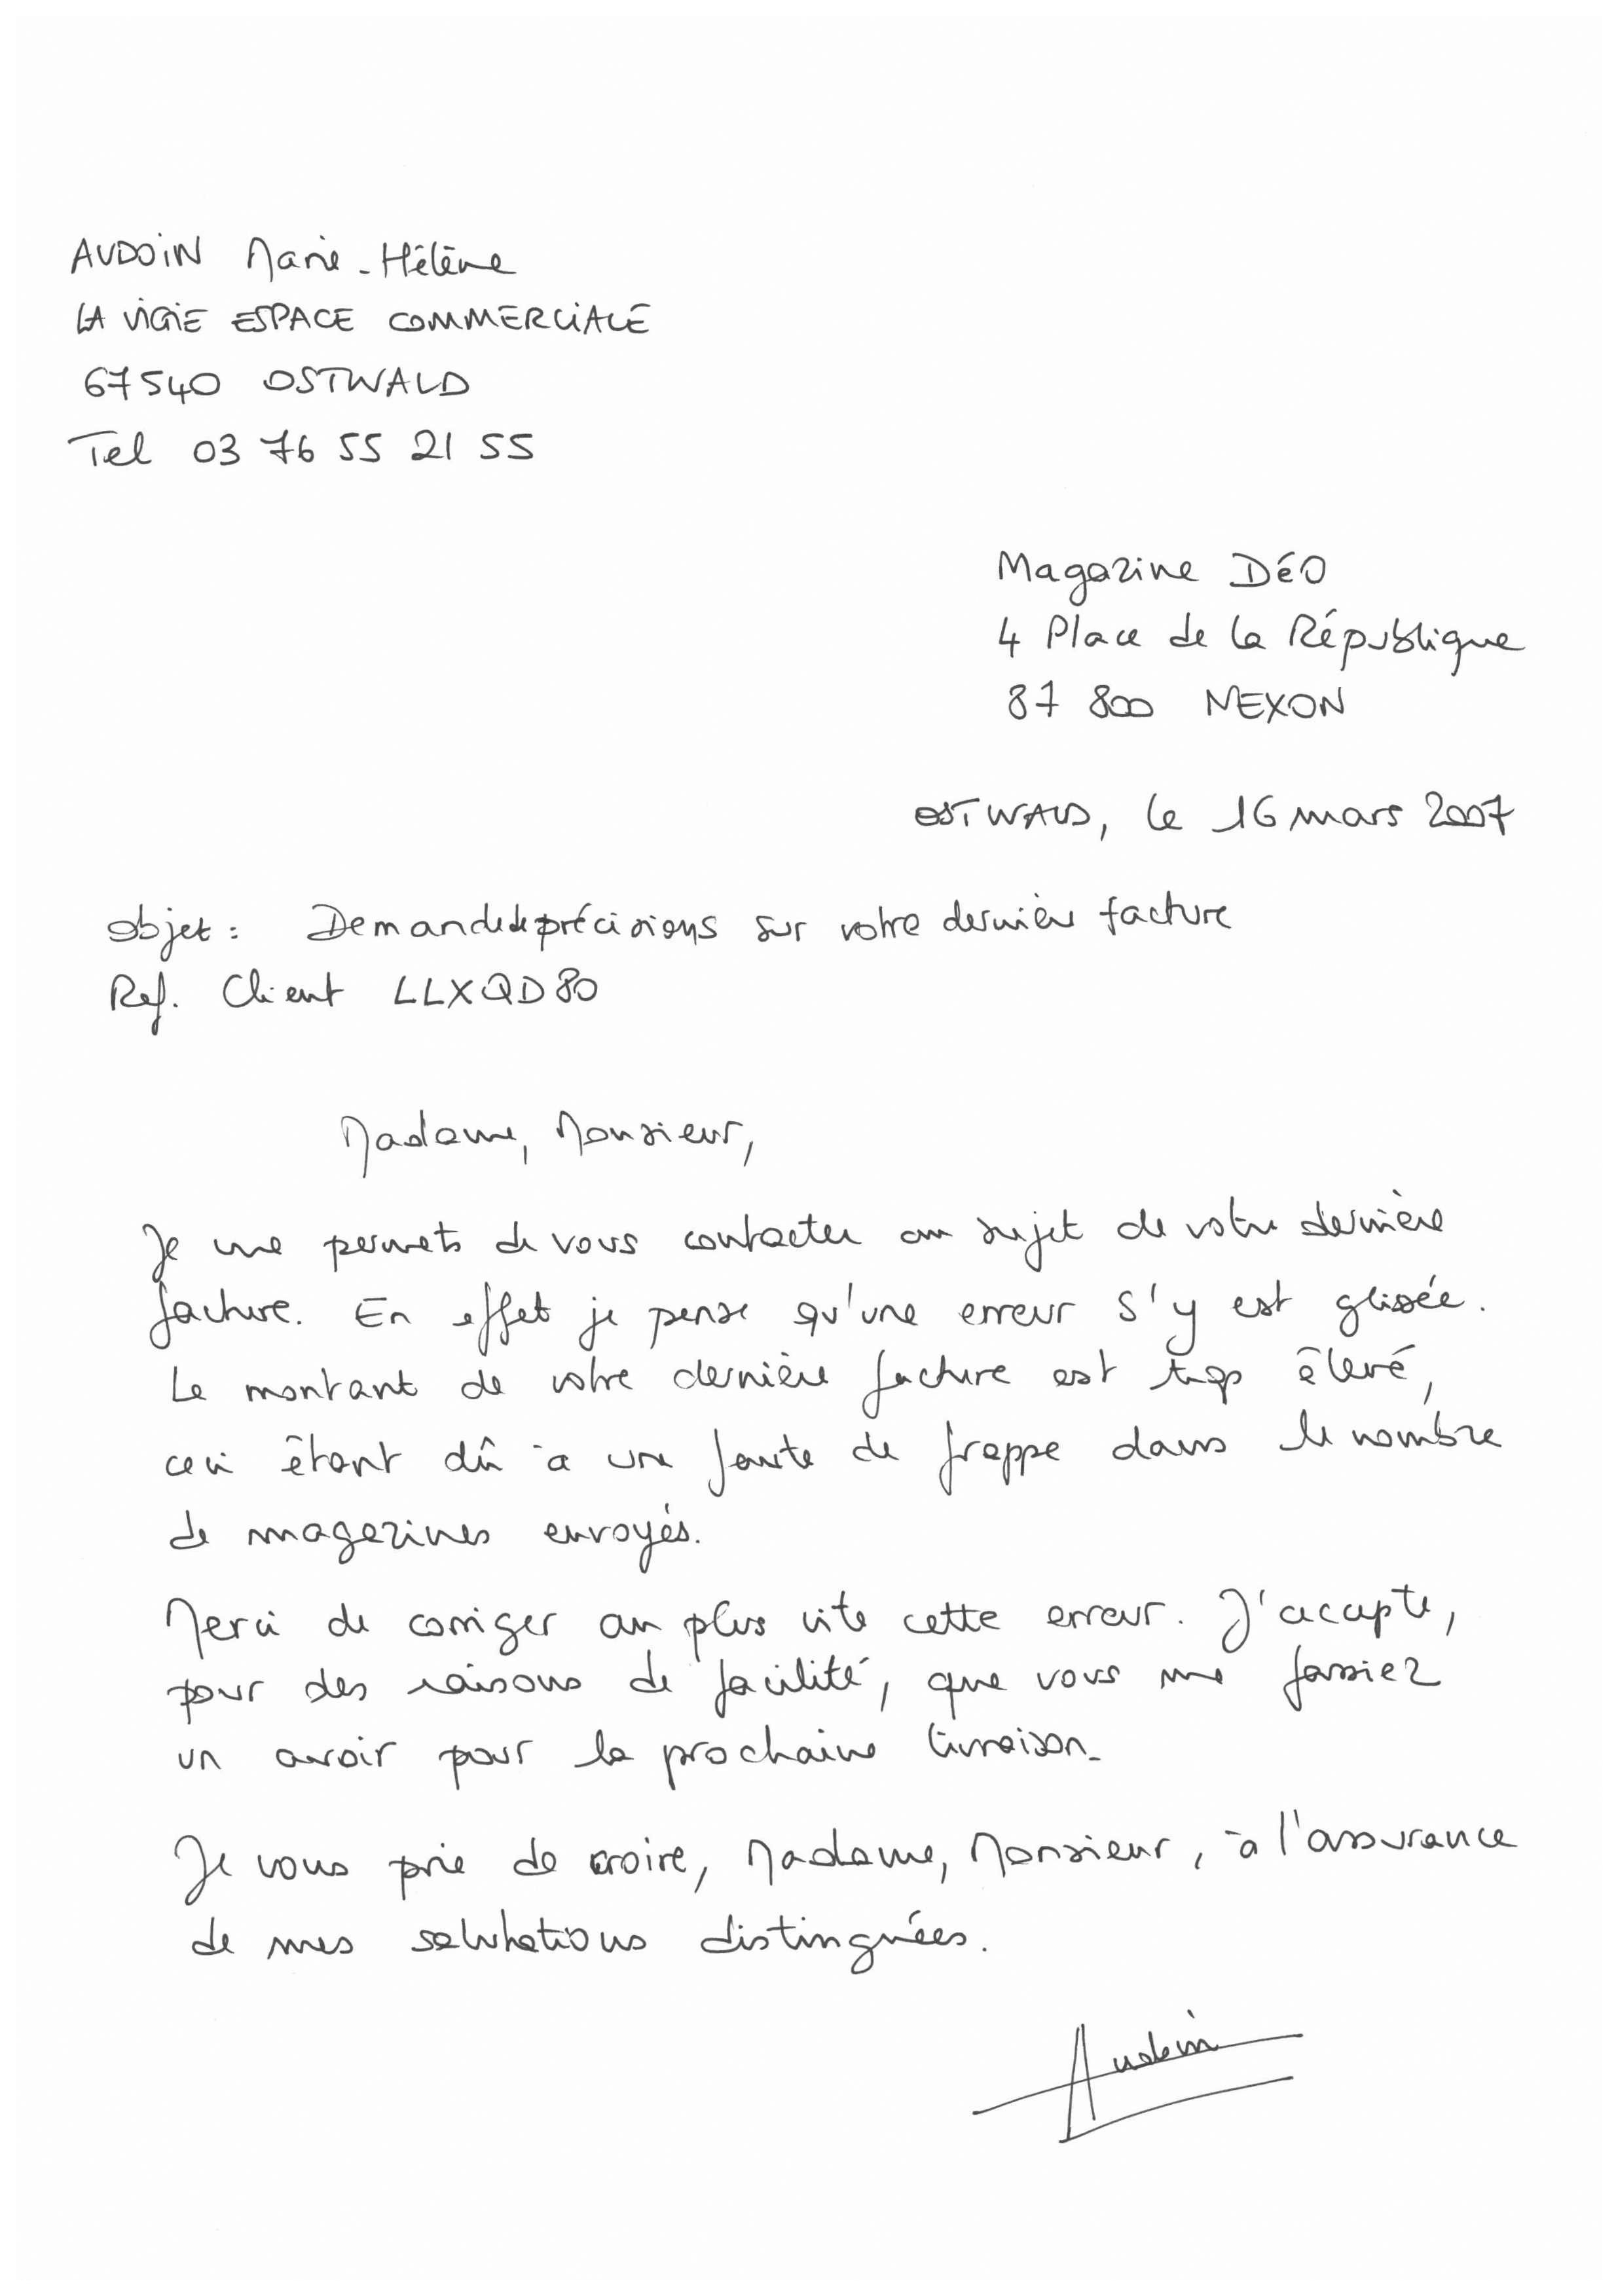 AUDOIN Marie-Hélène
LA VIGIE ESPACE COMMERCIALE
67540 OSTWALD
Tel 03 76 55 21 55
Magazine DéO
4 Place de la République
87 800 NEXON
OSTWALD, le 16 mars 2007
Objet : Demande de précisions sur votre dernière facture
Ref. Client LLXQD80
Madame, Monsieur,
Je me permets de vous contacter au sujet de votre dernière
facture. En effet je pense qu'une erreur s'y est glissée.
Le montant de votre dernière facture est trop élevé,
ceci étant dû à une faute de frappe dans le nombre
de magazines envoyés.
Merci de corriger au plus vite cette erreur. J'accepte,
pour des raisons de facilité, que vous me fassiez
un avoir pour la prochaine livraison.
Je vous prie de croire, Madame, Monsieur, à l'assurance
de mes salutations distinguées.
Audoin